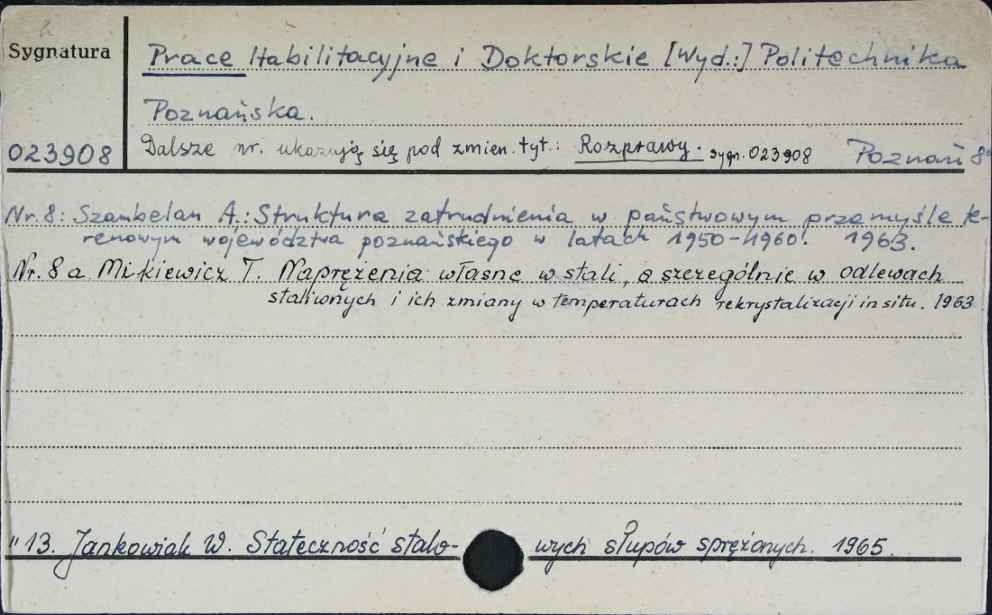 Sygnatura
Prace Habilitacyjne i Doktorskie [Wyd.:] Politechnika
Poznańska.
023908 Dalsze nr. ukazują się pod zmien. tyt.: Rozprawy. sygn. 023908 Poznań 8°
Nr. 8: Szambelan A.: Struktura zatrudnienia w państwowym przemyśle te-
renowym województwa poznańskiego w latach 1950-1960. 1963.
Nr. 8a Mikiewicz T. Naprężenia własne w stali, a szczególnie w odlewach
staliwnych i ich zmiany w temperaturach rekrystalizacji in situ. 1963
" 13. Jankowiak W. Stateczność stalo- wych słupów sprężonych. 1965.